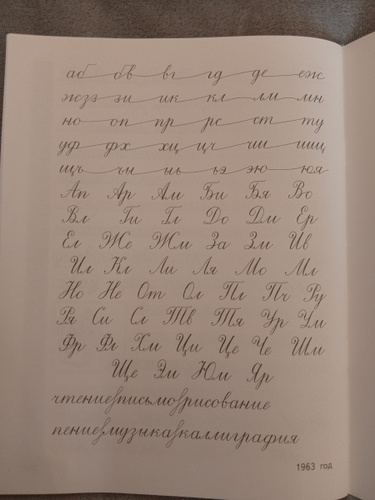 аб бв вг гд де еж
жзз зи ик кл лм мн
но оп пр рс ст ту
уф фх хц цч чш шщ
щъ чы ыь ьэ эю юя
Ап Ар Ам Би Бя Во
Вл Ги Гл До Дм Ер
Ел Же Жм За Зм Ив
Ил Кл Ли Ля Мо Мл
Но Не От Ол Пл Пч Ру
Ря Си Сл Тв Тя Ур Ум
Фр Фл Хм Ци Це Че Шм
Ще Эм Юм Яр
чтение письмо рисование
пение музыка каллиграфия
1963 год